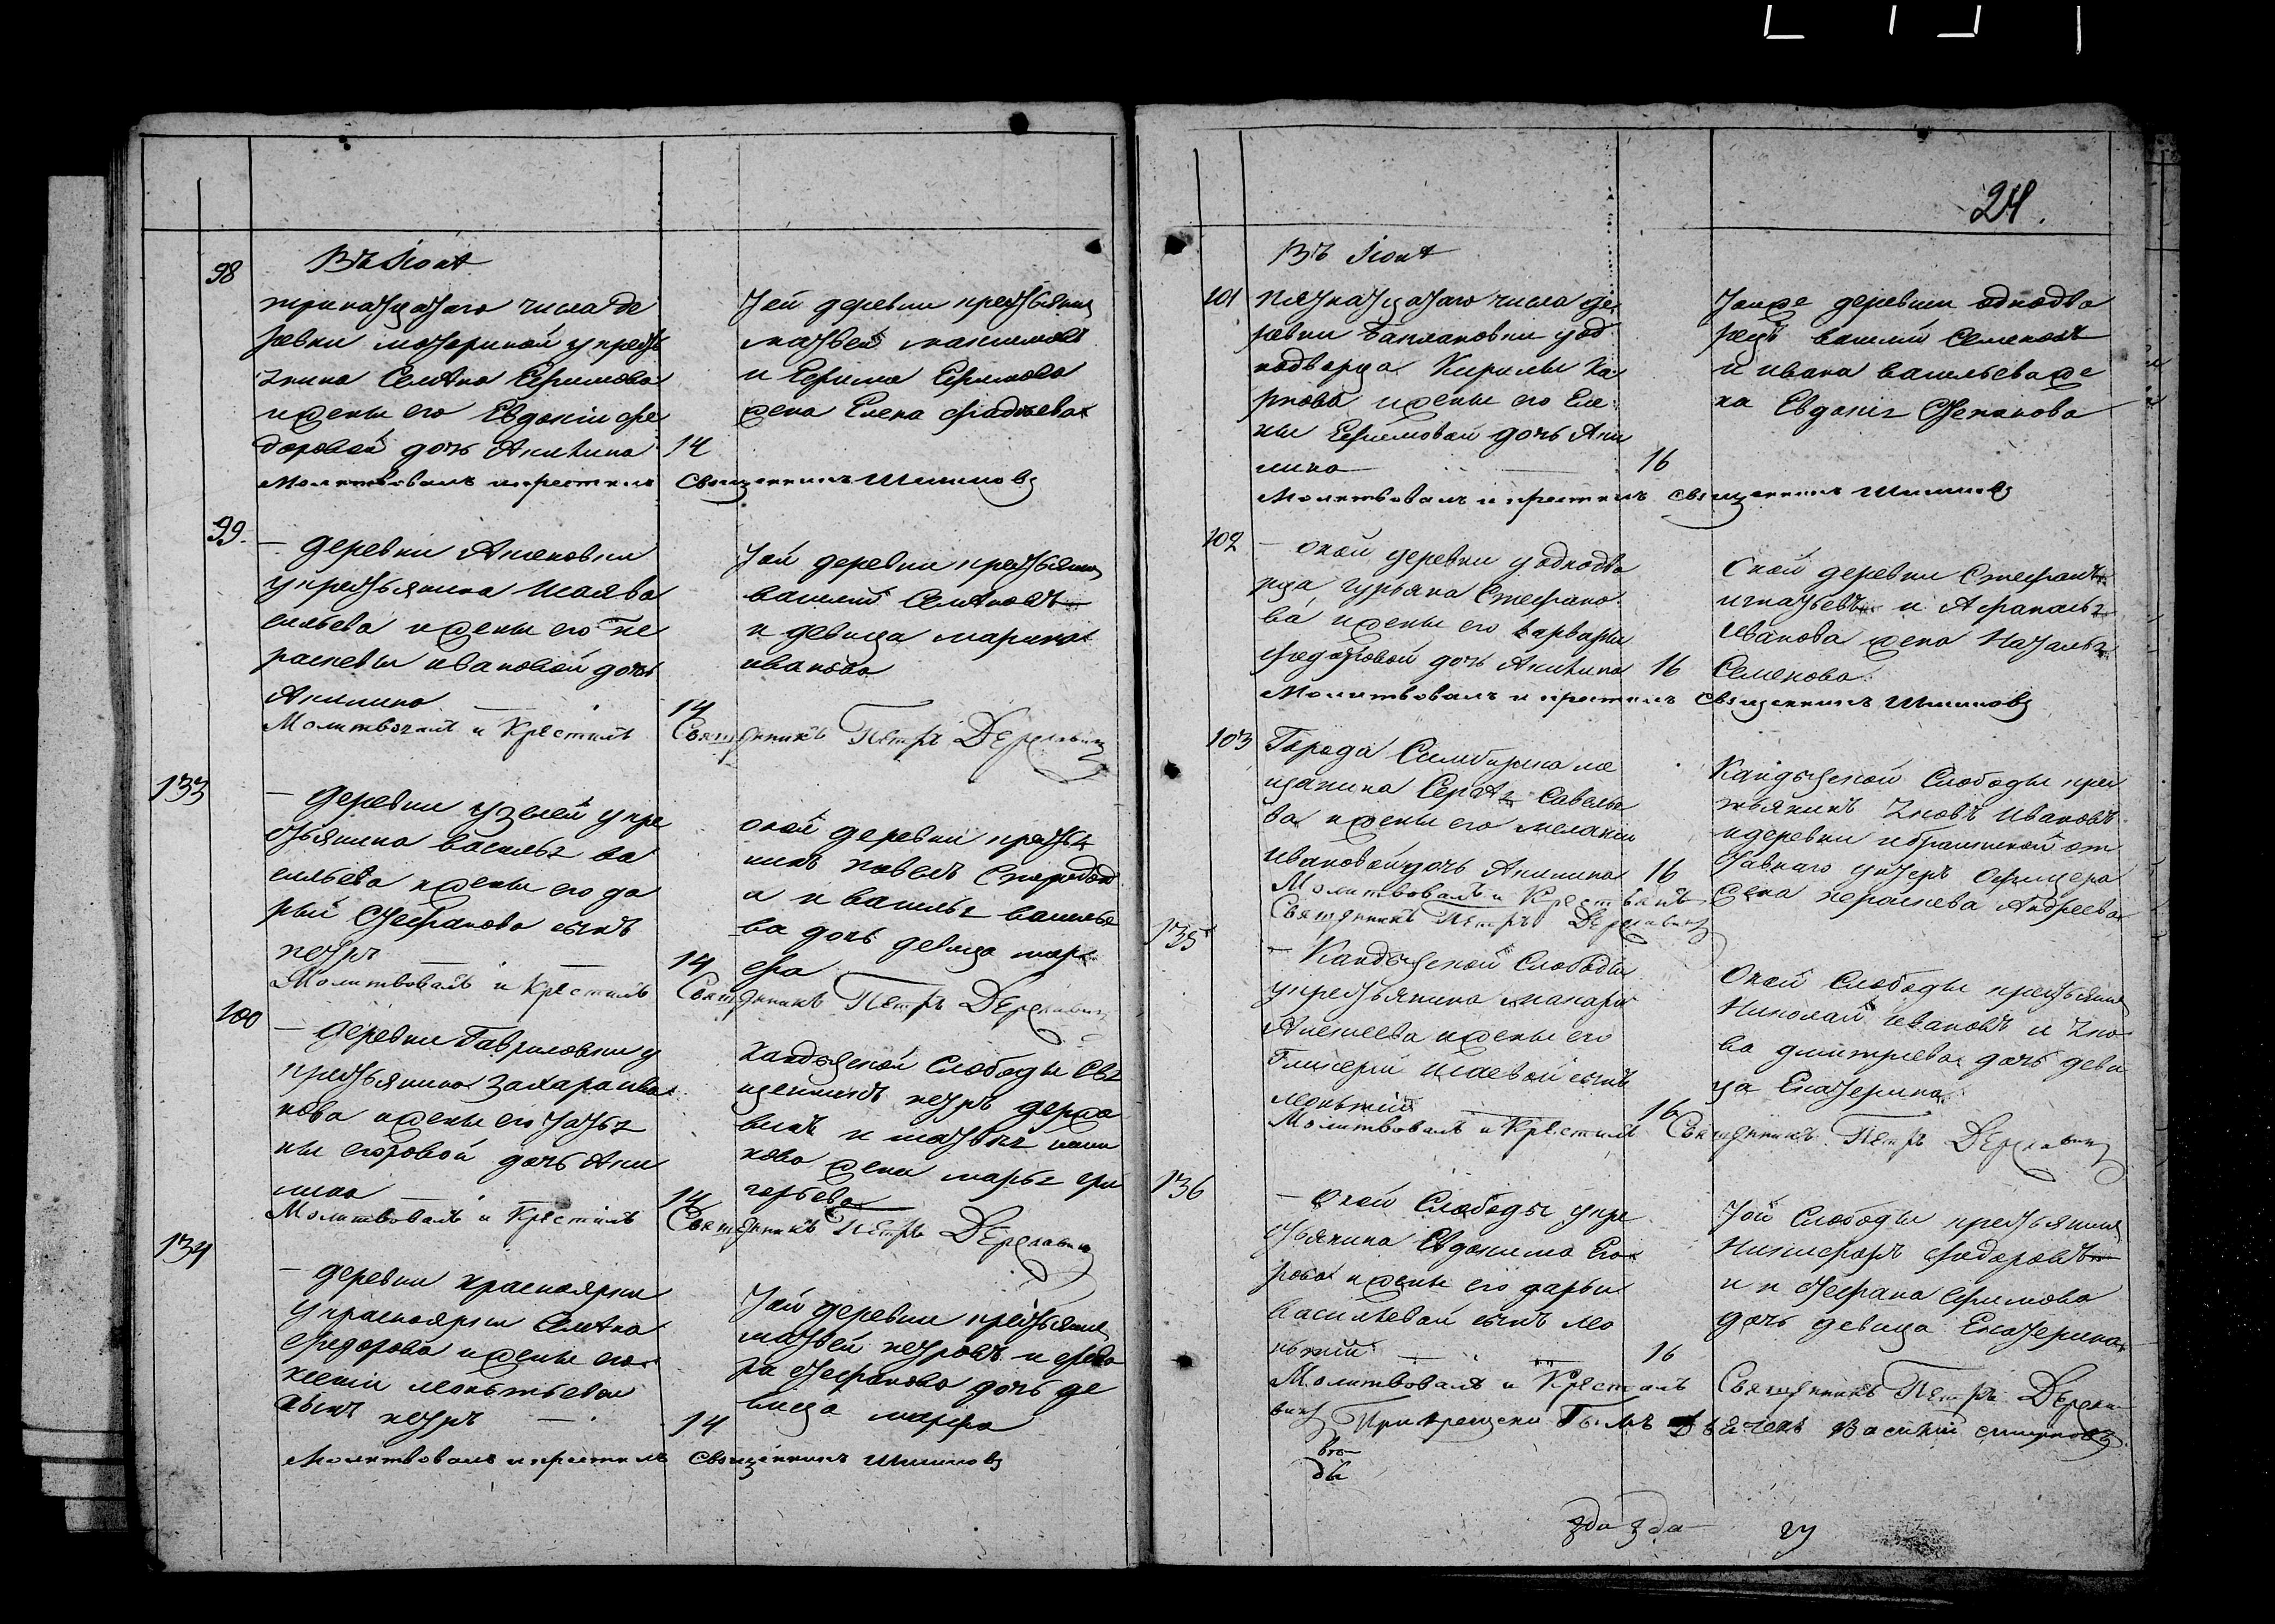 Въ Іюнѣ
98
тринатцатаго числа де
ревни материной у кресть
янина Семена Ефимова
и жены его Евдокіи Фе
доровой дочь Акилина 14
той деревни крестьянинъ
матвей максимовъ
и Ефима Ефимова
жена Елена Фадѣева
Молитвовалъ и крестилъ священникъ Шишковъ
99.
– деревни Аксеновки
у крестьянина Исая Ва
сильева и жены его Пе
расковьи ивановой дочь
Акилина 14
той деревни крестьянинъ
василей Семеновъ
и девица марина
иванова
Молитвовалъ и Крестилъ Священникъ Петръ Державинъ
133
– деревни узелей у кре
стьянина василья ва
сильева и жены его да
рьи Стефановой сынъ
петръ 14
оной деревни крестья
нинъ павелъ Спиридон
и василья василье
ва дочь девица мар
фа
Молитвовалъ и Крестилъ Священникъ Петръ Державинъ
100
– деревни Гавриловки у
крестьянина Захара ива
нова и жены его татья
ны егоровой дочь Аки
лина 14
Кандызской Слободы Свя
щенникъ петръ держа
винъ и
жена марья гри
горьева
Молитвовалъ и Крестилъ Священникъ Петръ Державинъ
134
– деревни красноярки
у красноярки Семена
Федорова и жены его
ксеніи леонтьевой
сынъ петръ 14
той деревни крестьянинъ
матвей петровъ и федо
ра Стефанова дочь де
вица марфа
Молитвовалъ и крестилъ священникъ Шишковъ
24.
Въ Іюнѣ
101
пятнатцатаго числа де
ревни Баклановки у од
нодворца Кирилы Ка
рпова и жены его Еле
ны Ефимовой дочь Аки
лина 16
тояже деревни однодво
рецъ василий Семеновъ
и ивана васильева же
на Евдокія Степанова
Молитвовалъ и крестилъ священникъ Шишковъ
102
– оной деревни у однодво
рца гурьяна Стефано
ва и жены его варвары
федотовой дочь Акилина 16
Оной деревни Стефанъ
игнатьевъ и Афанасья
Иванова жена Наталья
Семенова
Молитвовалъ и крестилъ священникъ Шишковъ
103
Города Симбирска ме
щанина Сергѣя Савелье
ва и жены его мелании
Ивановой дочь Акилина 16
Кандызской Слободы крес
тьянинъ Яковъ Ивановъ
и деревни ибрашкиной от
ставнаго унтеръ офицера
жена Парасковья Андреева
Молитвовалъ и Крестилъ
Священникъ Петръ Державинъ
135
– Кандызской Слободы
у крестьянина макара
Алексеева и жены его
Гликерии Исаевой сынъ
леонтий 16
Оной Слободы крестьянинъ
Николай ивановъ и Яко
ва дмитриева дочь деви
ца Екатерина
Молитвовалъ и Крестилъ Священникъ Петръ Державинъ
136
– Оной Слободы у кре
стьянина Евдокима Его
рова и жены его дарьи
Васильевой сынъ лео
нтий 16
той Слободы крестьянинъ
Никифоръ Федоровъ
и Стефана Ефимова
дочь девица Екатерина
Молитвовалъ и Крестилъ Священникъ Петръ Держа
винъ При крещени былъ Дьячекъ Василий Смирновъ